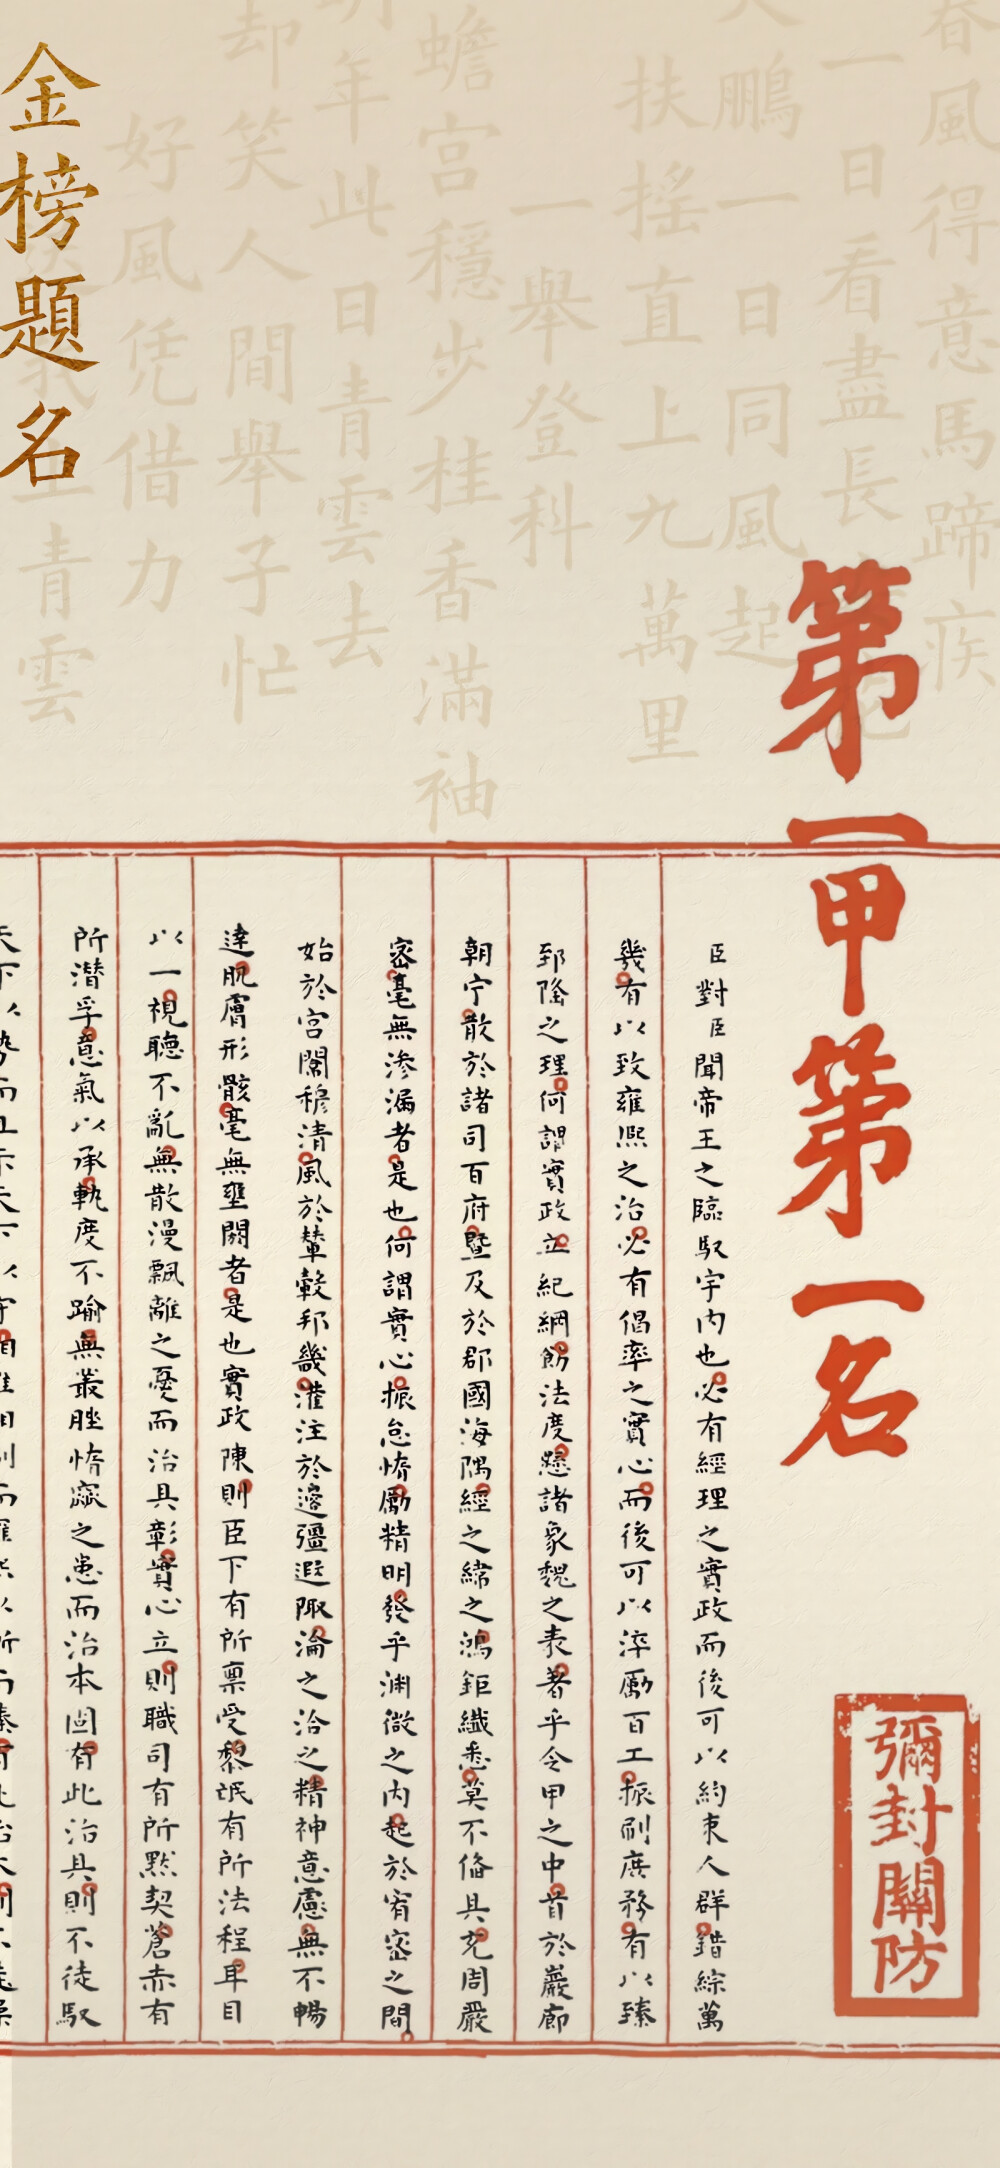 春風得意馬蹄疾
一日看盡長花
大鵬一日同風起
扶搖直上九萬里
一舉登科
蟾宮穩步桂香滿袖
明年此日青雲去
却笑人間舉子忙
好風凭借力
我上青雲
金榜題名
第一甲第一名
彌封關防
臣對臣聞帝王之臨馭宇内也必有經理之實政而後可以約束人群錯綜萬
幾有以致雍熙之治必有倡率之實心而後可以淬勵百工振刷庶務有以臻
郅隆之理何謂實政立紀綱飭法度懸諸象魏之表著乎令甲之中首於巖廊
朝宁散於諸司百府暨及於郡國海隅經之緯之鴻鉅纖悉莫不俻具充周嚴
密毫無滲漏者是也何謂實心振怠惰勵精明發乎淵微之内起於宥密之間
始於宮闈穆清風於輦轂邦畿灌注於邊疆遐陬淪之洽之精神意慮無不暢
達肌膚形骸毫無壅閼者是也實政陳則臣下有所稟受黎氓有所法程耳目
以一視聽不亂無散漫飄離之憂而治具彰實心立則職司有所默契蒼赤有
所潛孚意氣以承軌度不踰無叢脞惰窳之患而治本固有此治具則不徒馭